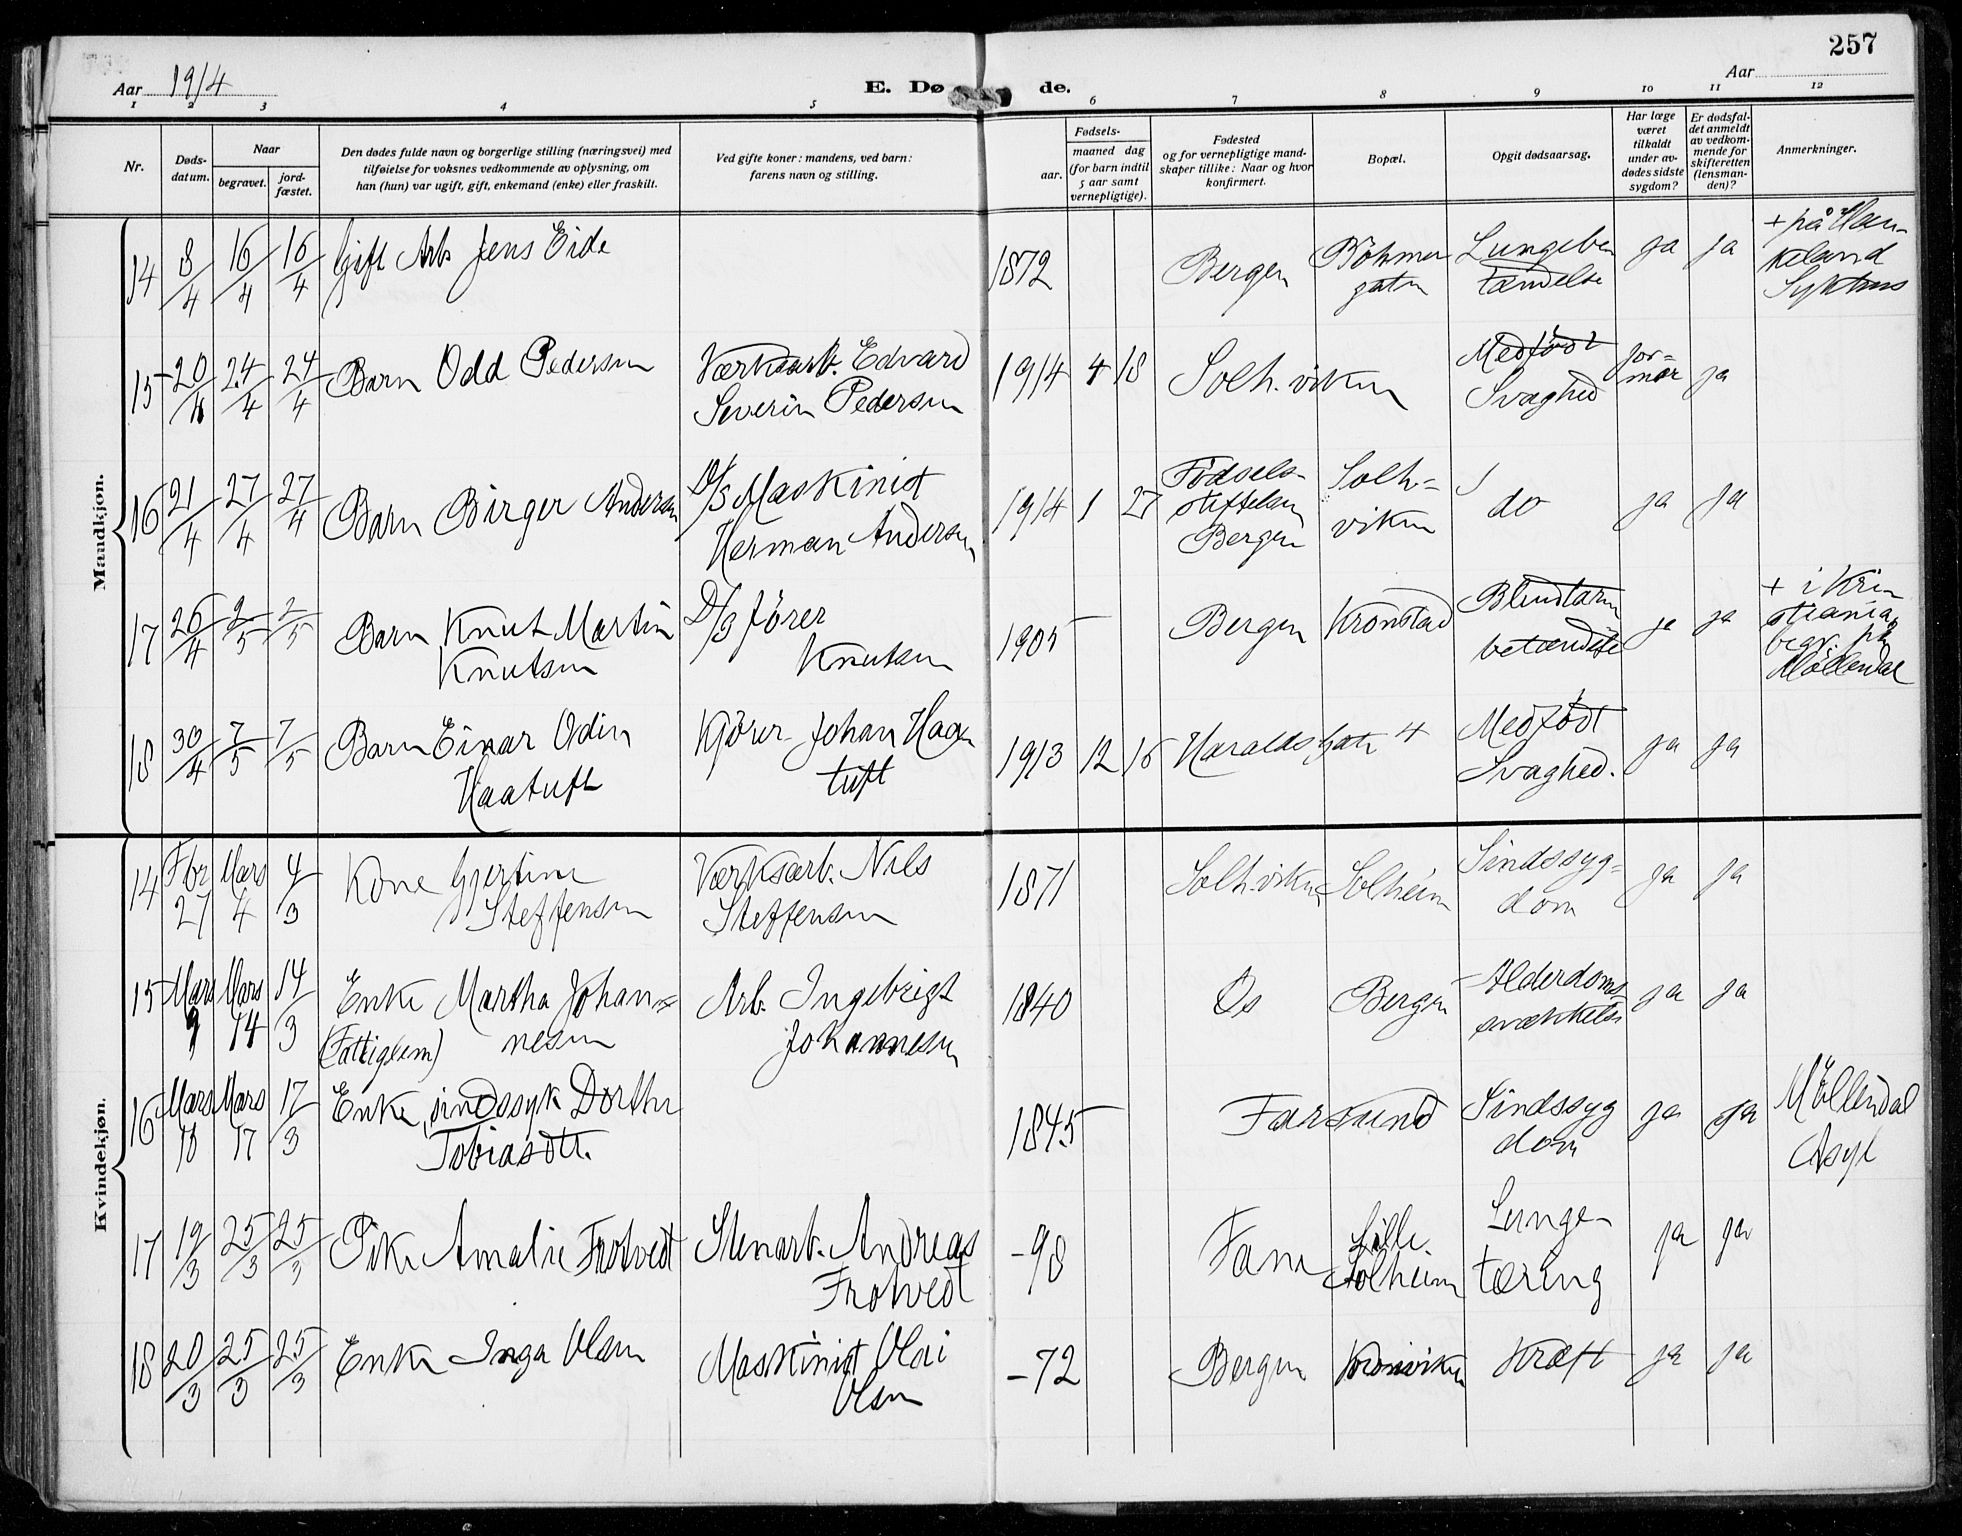 257
Aar 1914
E. Dø de.
Aar
1 2 3 4 5 6 7 8 9 10 11 12
Nr.
Døds-
datum.
Naar
begravet.
jord-
fæstet.
Den dødes fulde navn og borgerlige stilling (næringsvei) med
tilføielse for voksnes vedkommende av oplysning, om
han (hun) var ugift, gift, enkemand (enke) eller fraskilt.
Ved gifte koner: mandens, ved barn:
farens navn og stilling.
Fødsels-
aar.
maaned dag
(for barn indtil
5 aar samt
vernepligtige).
Fødested
og for vernepligtige mand-
skaper tillike: Naar og hvor
konfirmert.
Bopæl.
Opgit dødsaarsag.
Har læge
været
tilkaldt
under av-
dødes sidste
sygdom?
Er dødsfal-
det anmeldt
av vedkom-
mende for
skifteretten
(lensman-
den)?
Anmerkninger.
Maudkjøn.
14 8/4 16/4 16/4 Gift Arb Jens Eide 1872 Bergen Böhmer
gaten
Lungebe
tændelse
ja ja
+ på Hau-
keland
Sykhus
15 20/4 24/4 24/4 Barn Odd Pedersen
Værksarb. Edvard
Severin Pedersen
1914 4 18 Solh.viken
Medfödt
Svaghed
jor-
mor
ja
16 21/4 27/4 27/4 Barn Birger Andersen
D/S Maskinist
Herman Andersen
1914 1 27
Födsels-
stiftelsen
Bergen
Solh-
viken
do ja ja
17 26/4 2/5 2/5 Barn Knut Martin
Knutsen
D/S förer
Knutsen
1905 Bergen Kronstad
Blindtarm
betændelse
ja ja
+ i Kri
stiania,
begr. på
Möllendal
18 30/4 7/5 7/5 Barn Einar Odin
Haatuft
Kjörer Johan Haga
tuft
1913 12 16 Haraldsgatr 4
Medfödt
Svaghed.
ja ja
Kvindekjøn.
14 Fbr
27
Mars
4
4/3 Kone Gjertine
Steffensen
Værksarb. Nils
Steffensen
1871 Solh.viken Solheim
Sindssyg-
dom
ja ja
15 Mars
9
Mars
14
14/3 Enke Martha Johan-
(Fattiglem) nesen
Arb. Ingebrigt
Johannesen
1840 Os Bergen
Alderdoms
svækkelse
ja ja
16 Mars
Mars
17
17/3 Enke, sindssyk Dorthe
Tobiasdtt.
1845 Farsund
Sindssyg
dom
ja ja
Möllendal
Asyl
17 19/3 25/3 25/3 Pike Amalie Frotvedt
Stenarb. Andreas
Frotvedt
-98 Fane
Lille
Solheim
Lunge-
tæring
ja ja
18 20/3 25/3 25/3 Enke Inga Olsen
Maskinist Olai
Olsen
-72 Bergen Kronviken Kræft ja ja